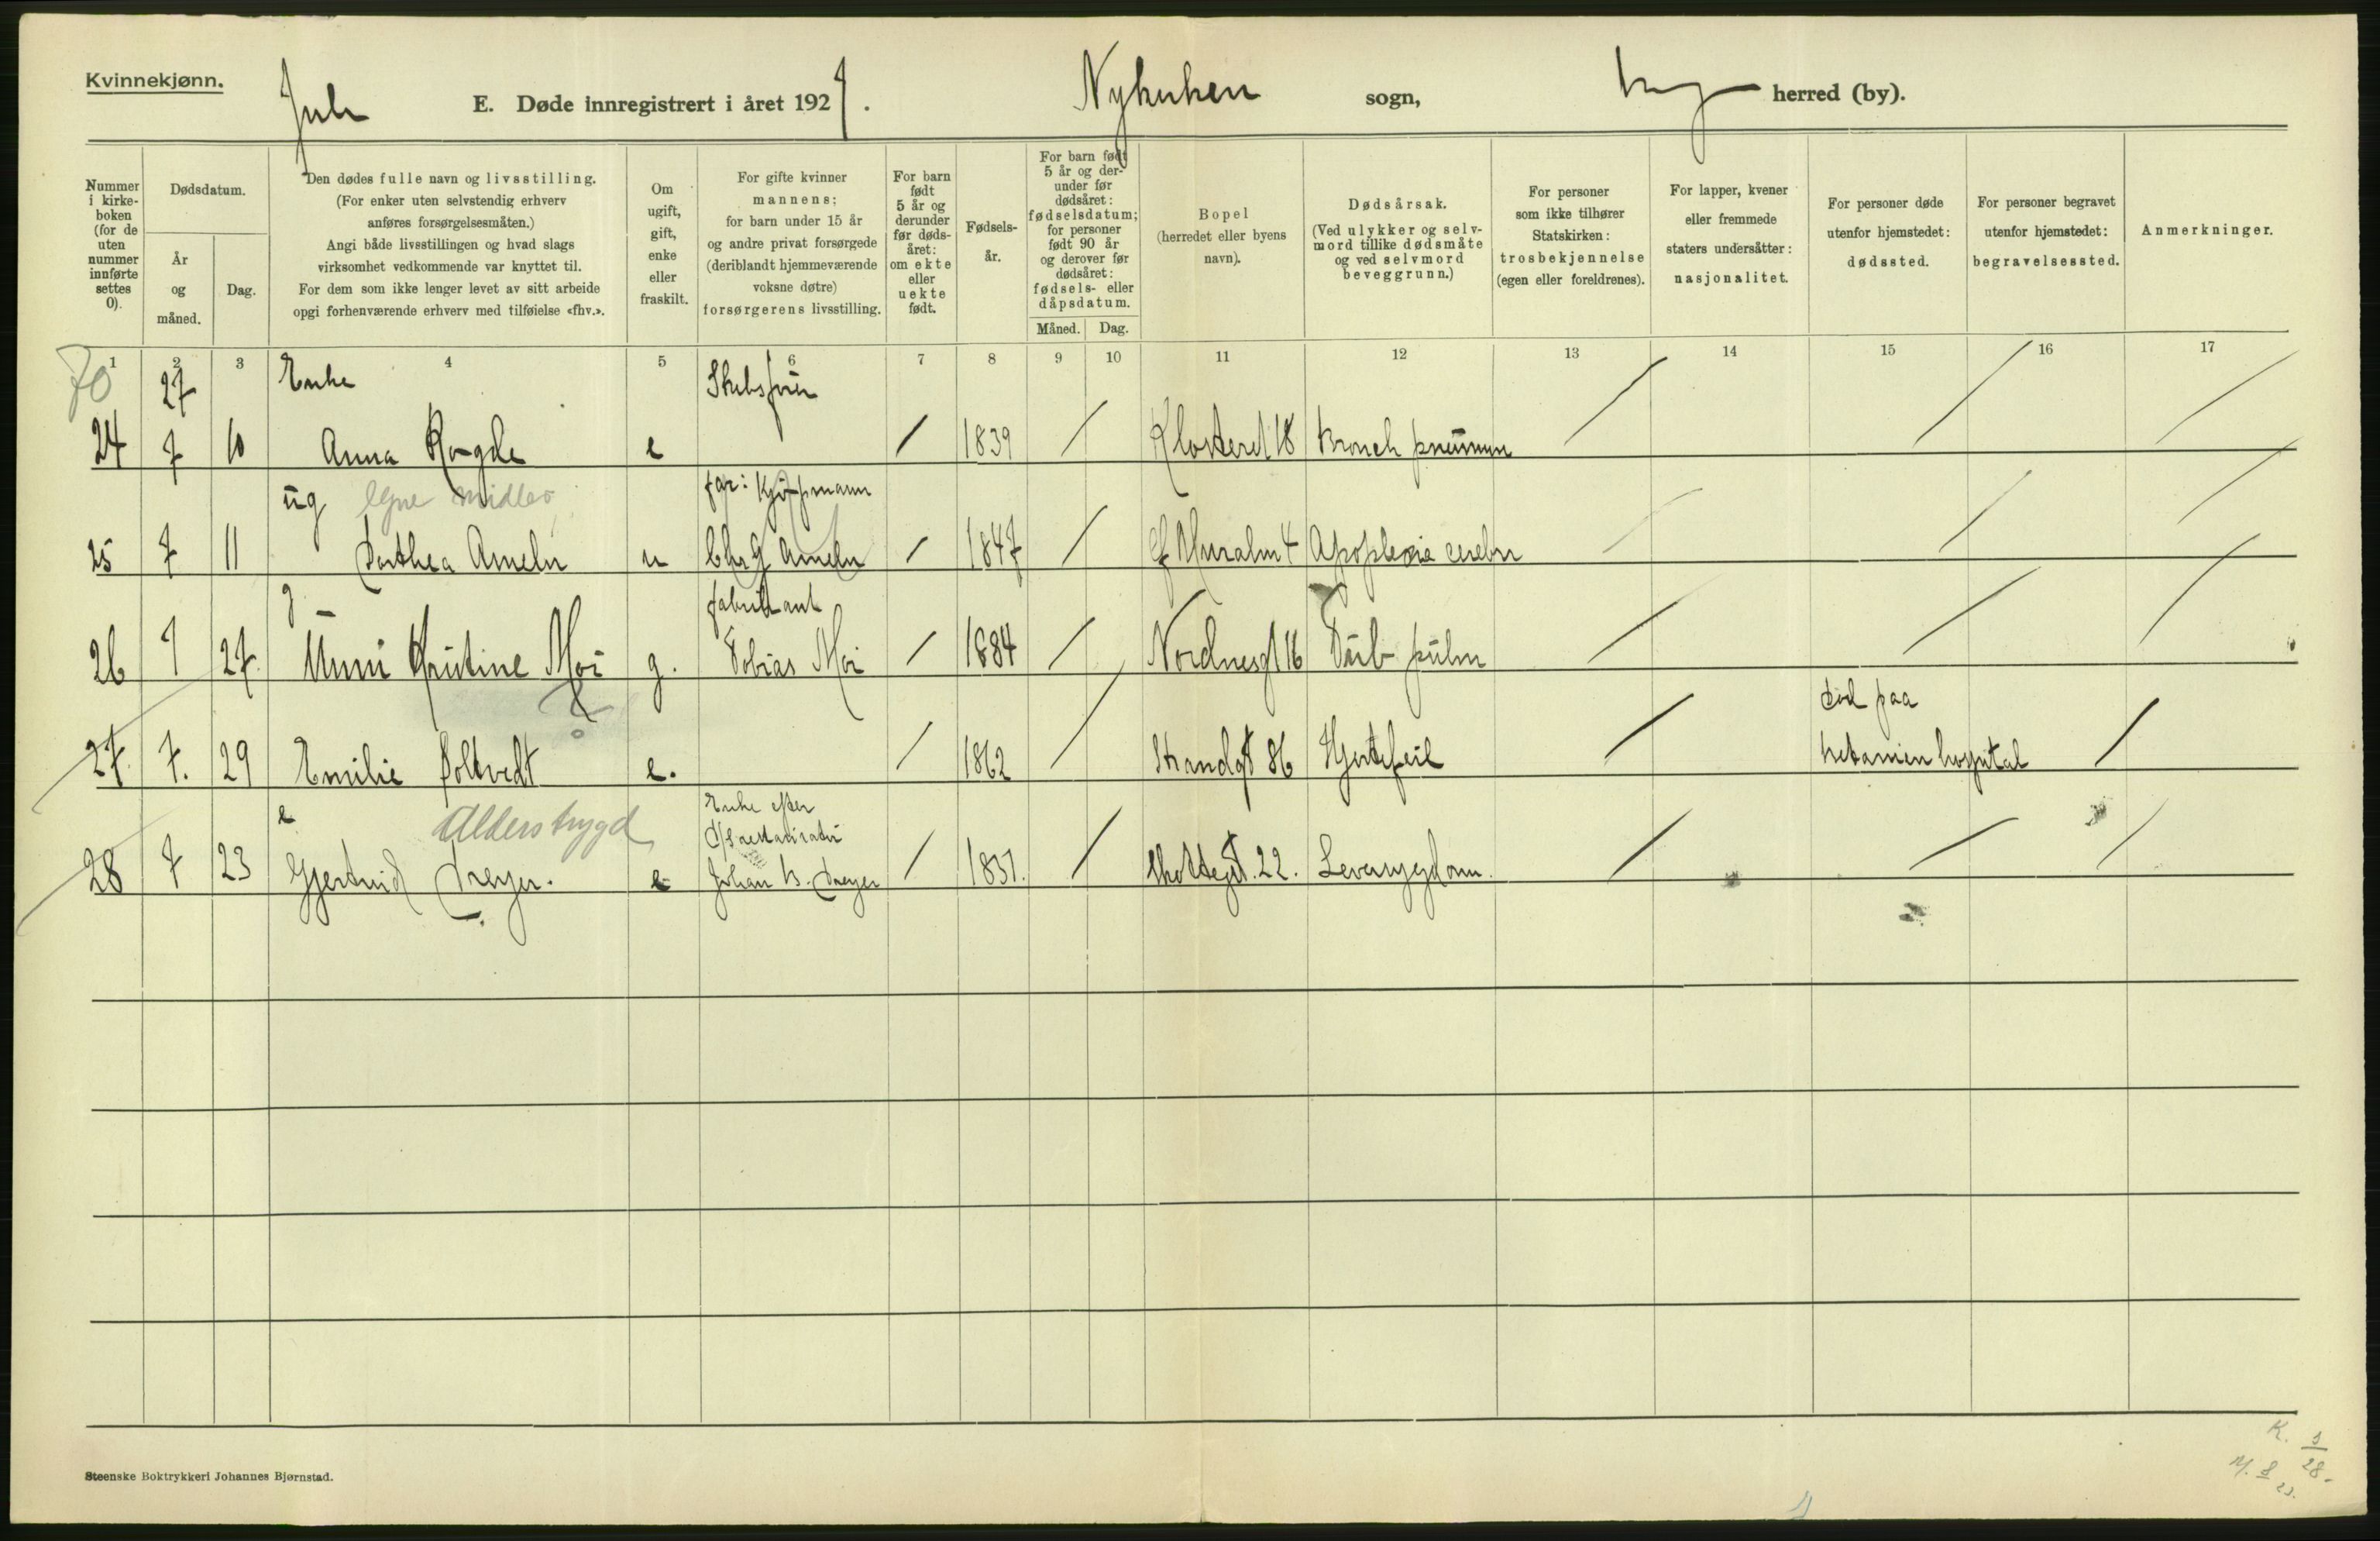 Kvinnekjønn.
Juli E. Døde innregistrert i året 1927. Nykirken sogn, herred (by).
Nummer i kirke-boken (for de uten nummer innførte settes 0).
Dødsdatum.
År og måned.
Dag.
Den dødes fulle navn og livsstilling.
(For enker uten selvstendig erhverv
anføres forsørgelsesmåten.)
Angi både livsstillingen og hvad slags
virksomhet vedkommende var knyttet til.
For dem som ikke lenger levet av sitt arbeide
opgi forhenværende erhverv med tilføielse «fhv.».
Om ugift, gift, enke eller fraskilt.
For gifte kvinner
mannens;
for barn under 15 år
og andre privat forsørgede
(deriblandt hjemmeværende
voksne døtre)
forsørgerens livsstilling.
For barn født 5 år og derunder før døds-året: om ekte eller uekte født.
Fødsels-år.
For barn født 5 år og der-under før dødsåret: fødselsdatum; for personer født 90 år og derover før dødsåret: fødsels- eller dåpsdatum.
Måned. Dag.
Bopel
(herredet eller byens
navn).
Dødsårsak.
(Ved ulykker og selv-
mord tillike dødsmåte
og ved selvmord
beveggrunn.)
For personer
som ikke tilhører
Statskirken:
trosbekjennelse
(egen eller foreldrenes).
For lapper, kvener
eller fremmede
staters undersåtter:
nasjonalitet.
For personer døde
utenfor hjemstedet:
dødssted.
For personer begravet
utenfor hjemstedet:
begravelsessted.
Anmerkninger.
1 2 3 4 5 6 7 8 9 10 11 12 13 14 15 16 17
70 27 Enke
24 7 10 Anna e / 1839 / Klosteret 18 Bronch / / /
ug Egne midler far: Kjøpmann
25 7 11 Dorthea Ameln u Chr G Ameln / 1847 / 4 Apoplexia cerebri / / /
g fabrikant
26 7 27. Kristine Moi g. Tobias Moi / 1884 / Nordnesgt 16 Tub pulm / / /
død paa
27. 7. 29 Emilie e. / 1862 / Strandgt 86 Hjertefeil / Betanien hospital /
e Alderstrygd Enke efter
28 7 23 Gjertrud Dreyer. e Johan B. Dreyer / 1837. / 22. Leversygdom. / / /
Steenske Boktrykkeri Johannes Bjørnstad.
K. 28.
M. 8